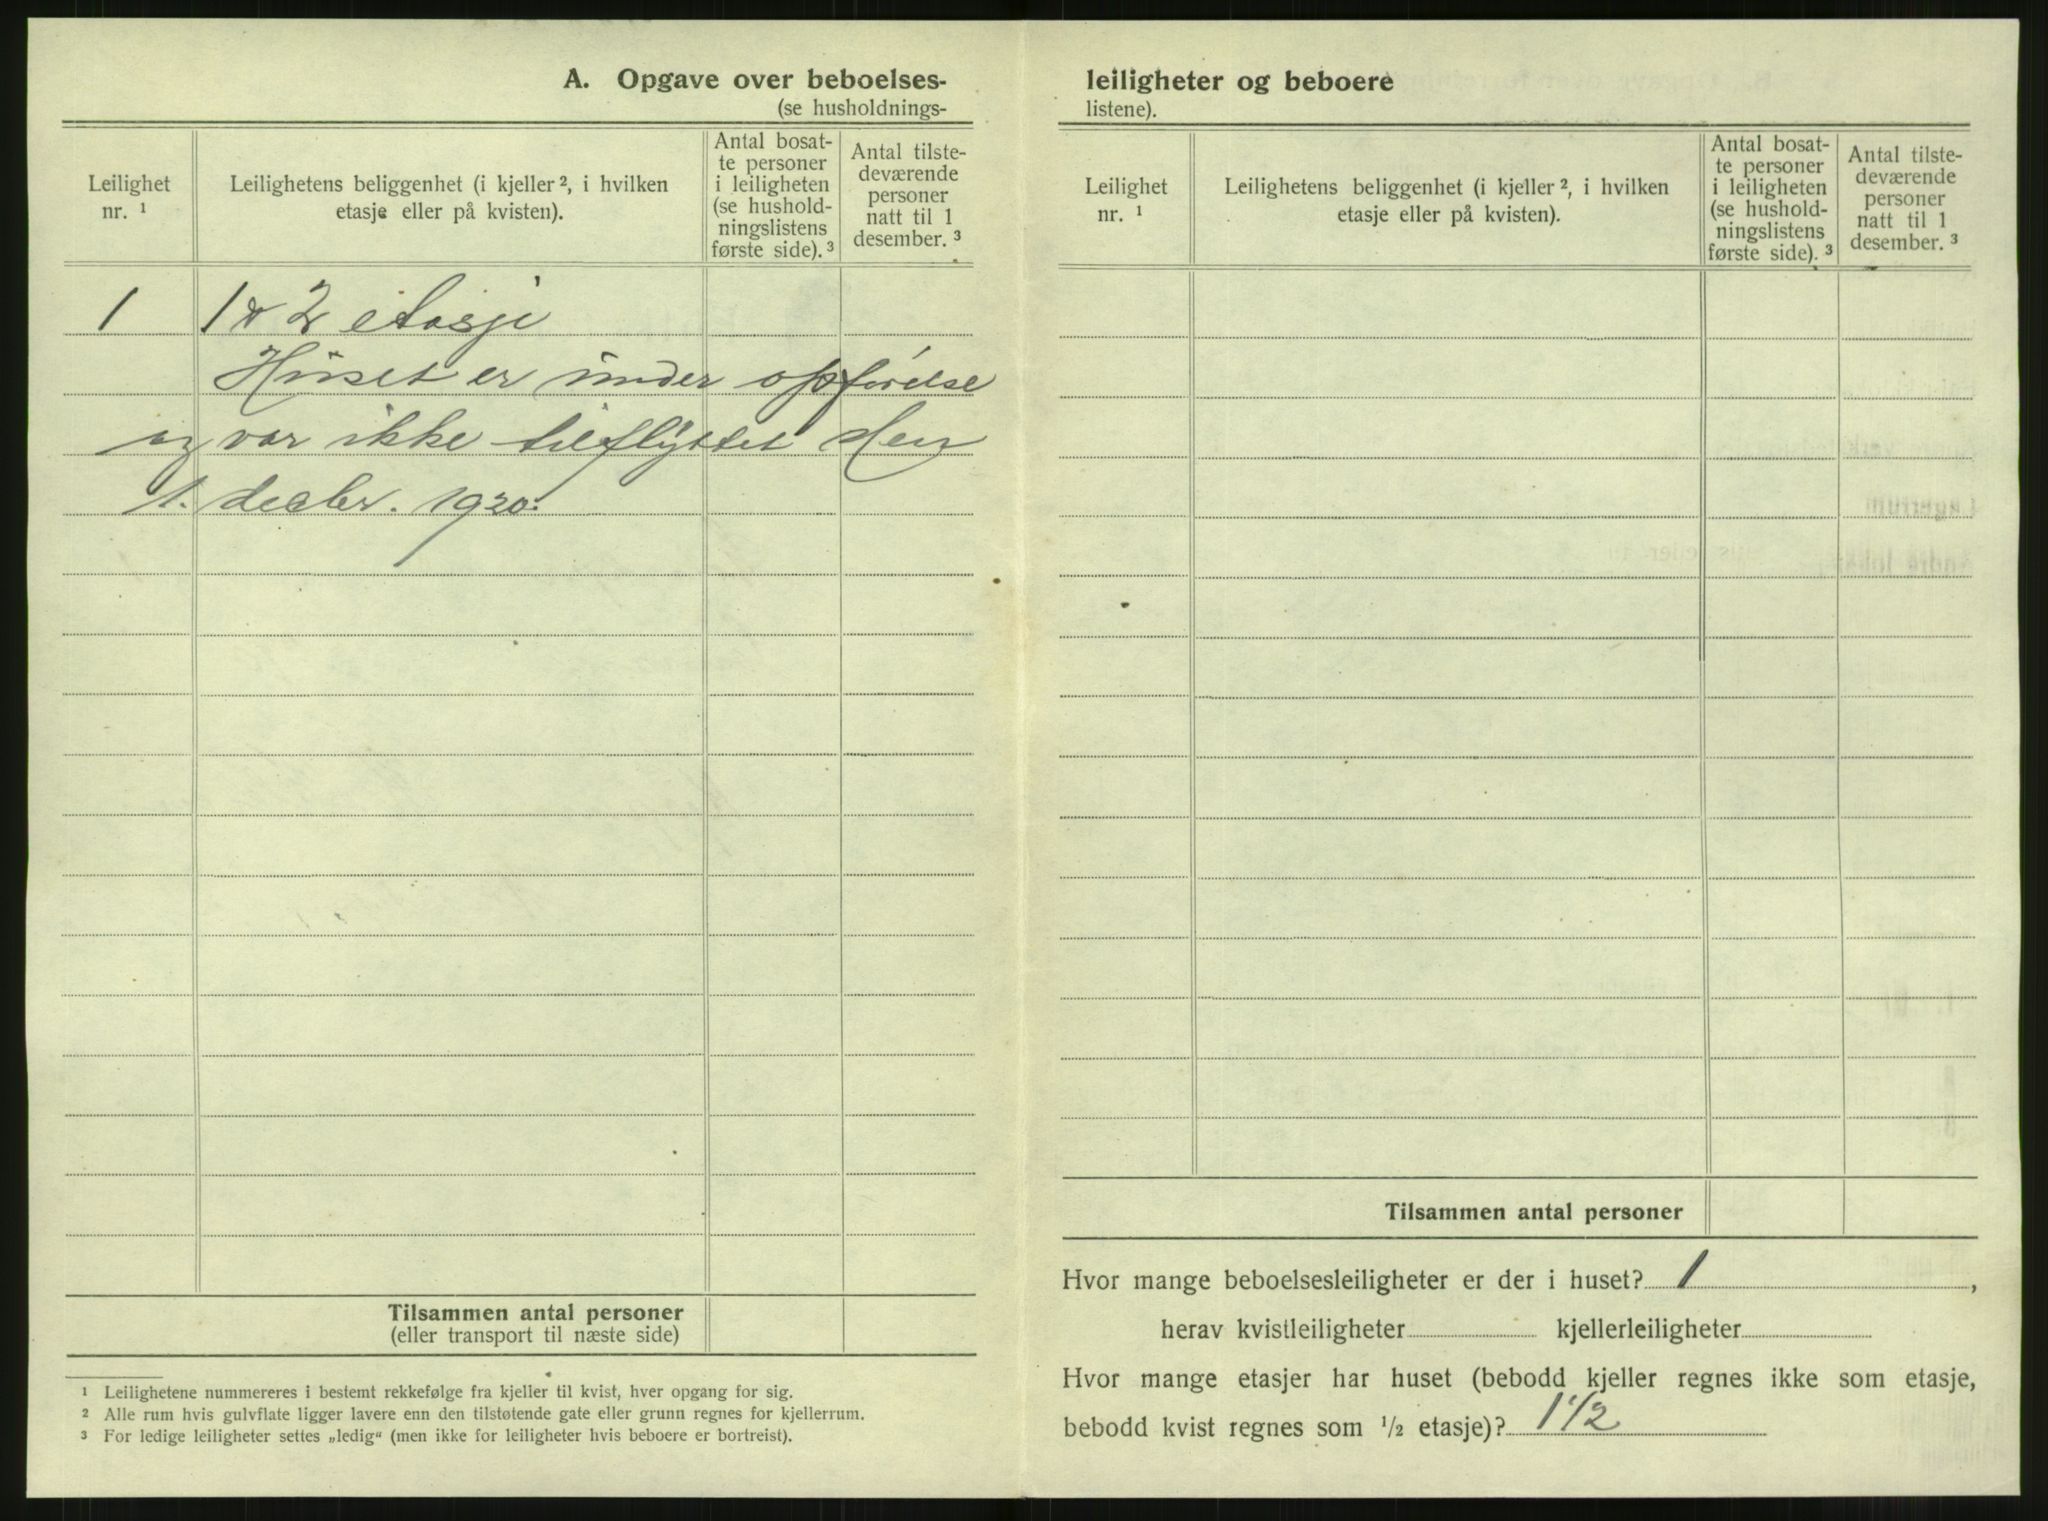 A. Opgave over beboelses-
(se husholdnings-
Leilighet
nr. ¹
Leilighetens beliggenhet (i kjeller ², i hvilken
etasje eller på kvisten).
Antal bosat-
te personer
i leiligheten
(se hushold-
ningslistens
første side). ³
Antal tilste-
deværende
personer
natt til 1
desember. ³
1 1 & 2 etasje
Huset er under opførelse
og var ikke tilflyttet den
1. decbr. 1920.
Tilsammen antal personer
(eller transport til næste side)
¹ Leilighetene nummereres i bestemt rekkefølge fra kjeller til kvist, hver opgang for sig.
² Alle rum hvis gulvflate ligger lavere enn den tilstøtende gate eller grunn regnes for kjellerrum.
³ For ledige leiligheter settes „ledig“ (men ikke for leiligheter hvis beboere er bortreist).
leiligheter og beboere
listene).
Leilighet
nr. ¹
Leilighetens beliggenhet (i kjeller ², i hvilken
etasje eller på kvisten).
Antal bosat-
te personer
i leiligheten
(se hushold-
ningslistens
første side). ³
Antal tilste-
deværende
personer
natt til 1
desember. ³
Tilsammen antal personer
Hvor mange beboelsesleiligheter er der i huset? 1,
herav kvistleiligheter kjellerleiligheter
Hvor mange etasjer har huset (bebodd kjeller regnes ikke som etasje,
bebodd kvist regnes som ½ etasje)? 1 1/2